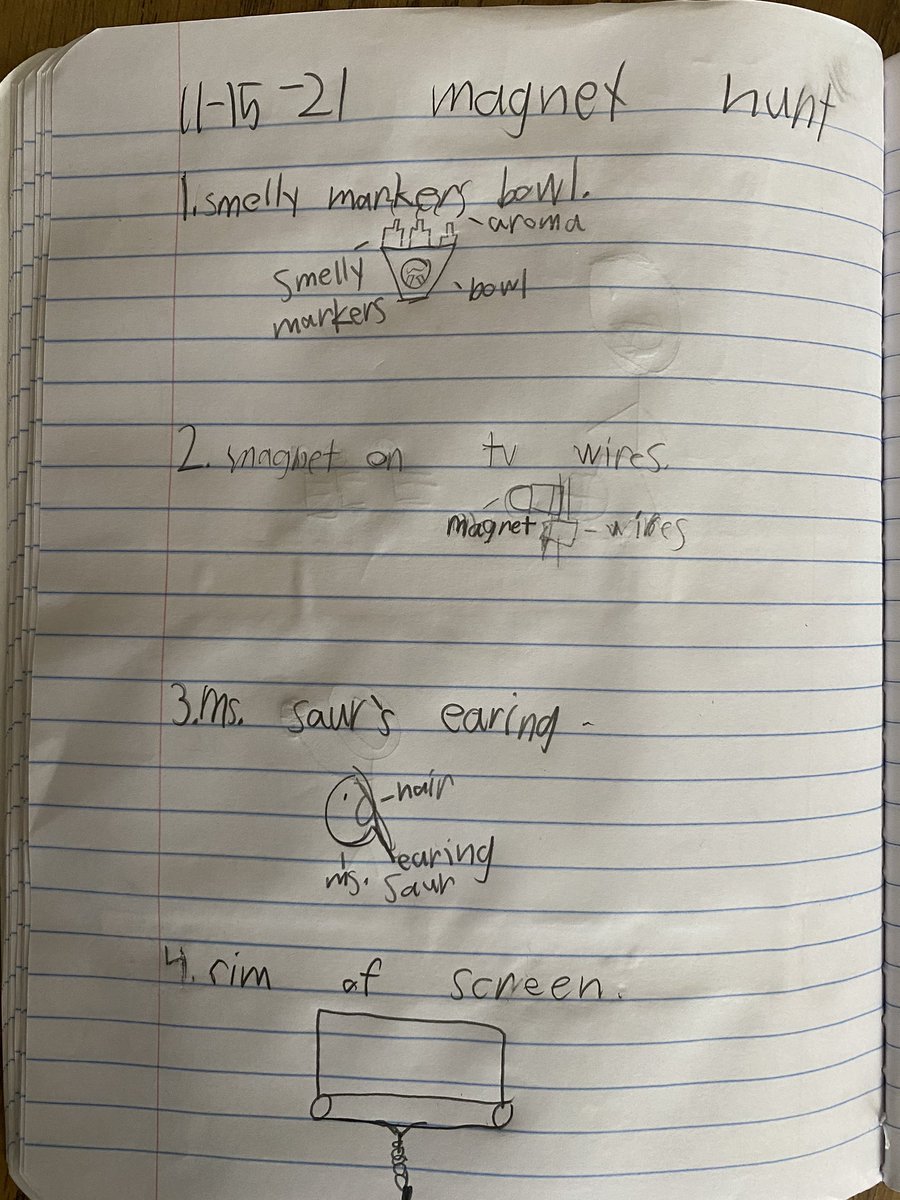 11-15-21 magnet hunt
1. smelly markers bowl.
aroma
smelly
markers
bowl
2. magnet on tv wires.
magnet
wires
3. ms. saur's earing
hair
earing
ms. saur
4. rim of screen.